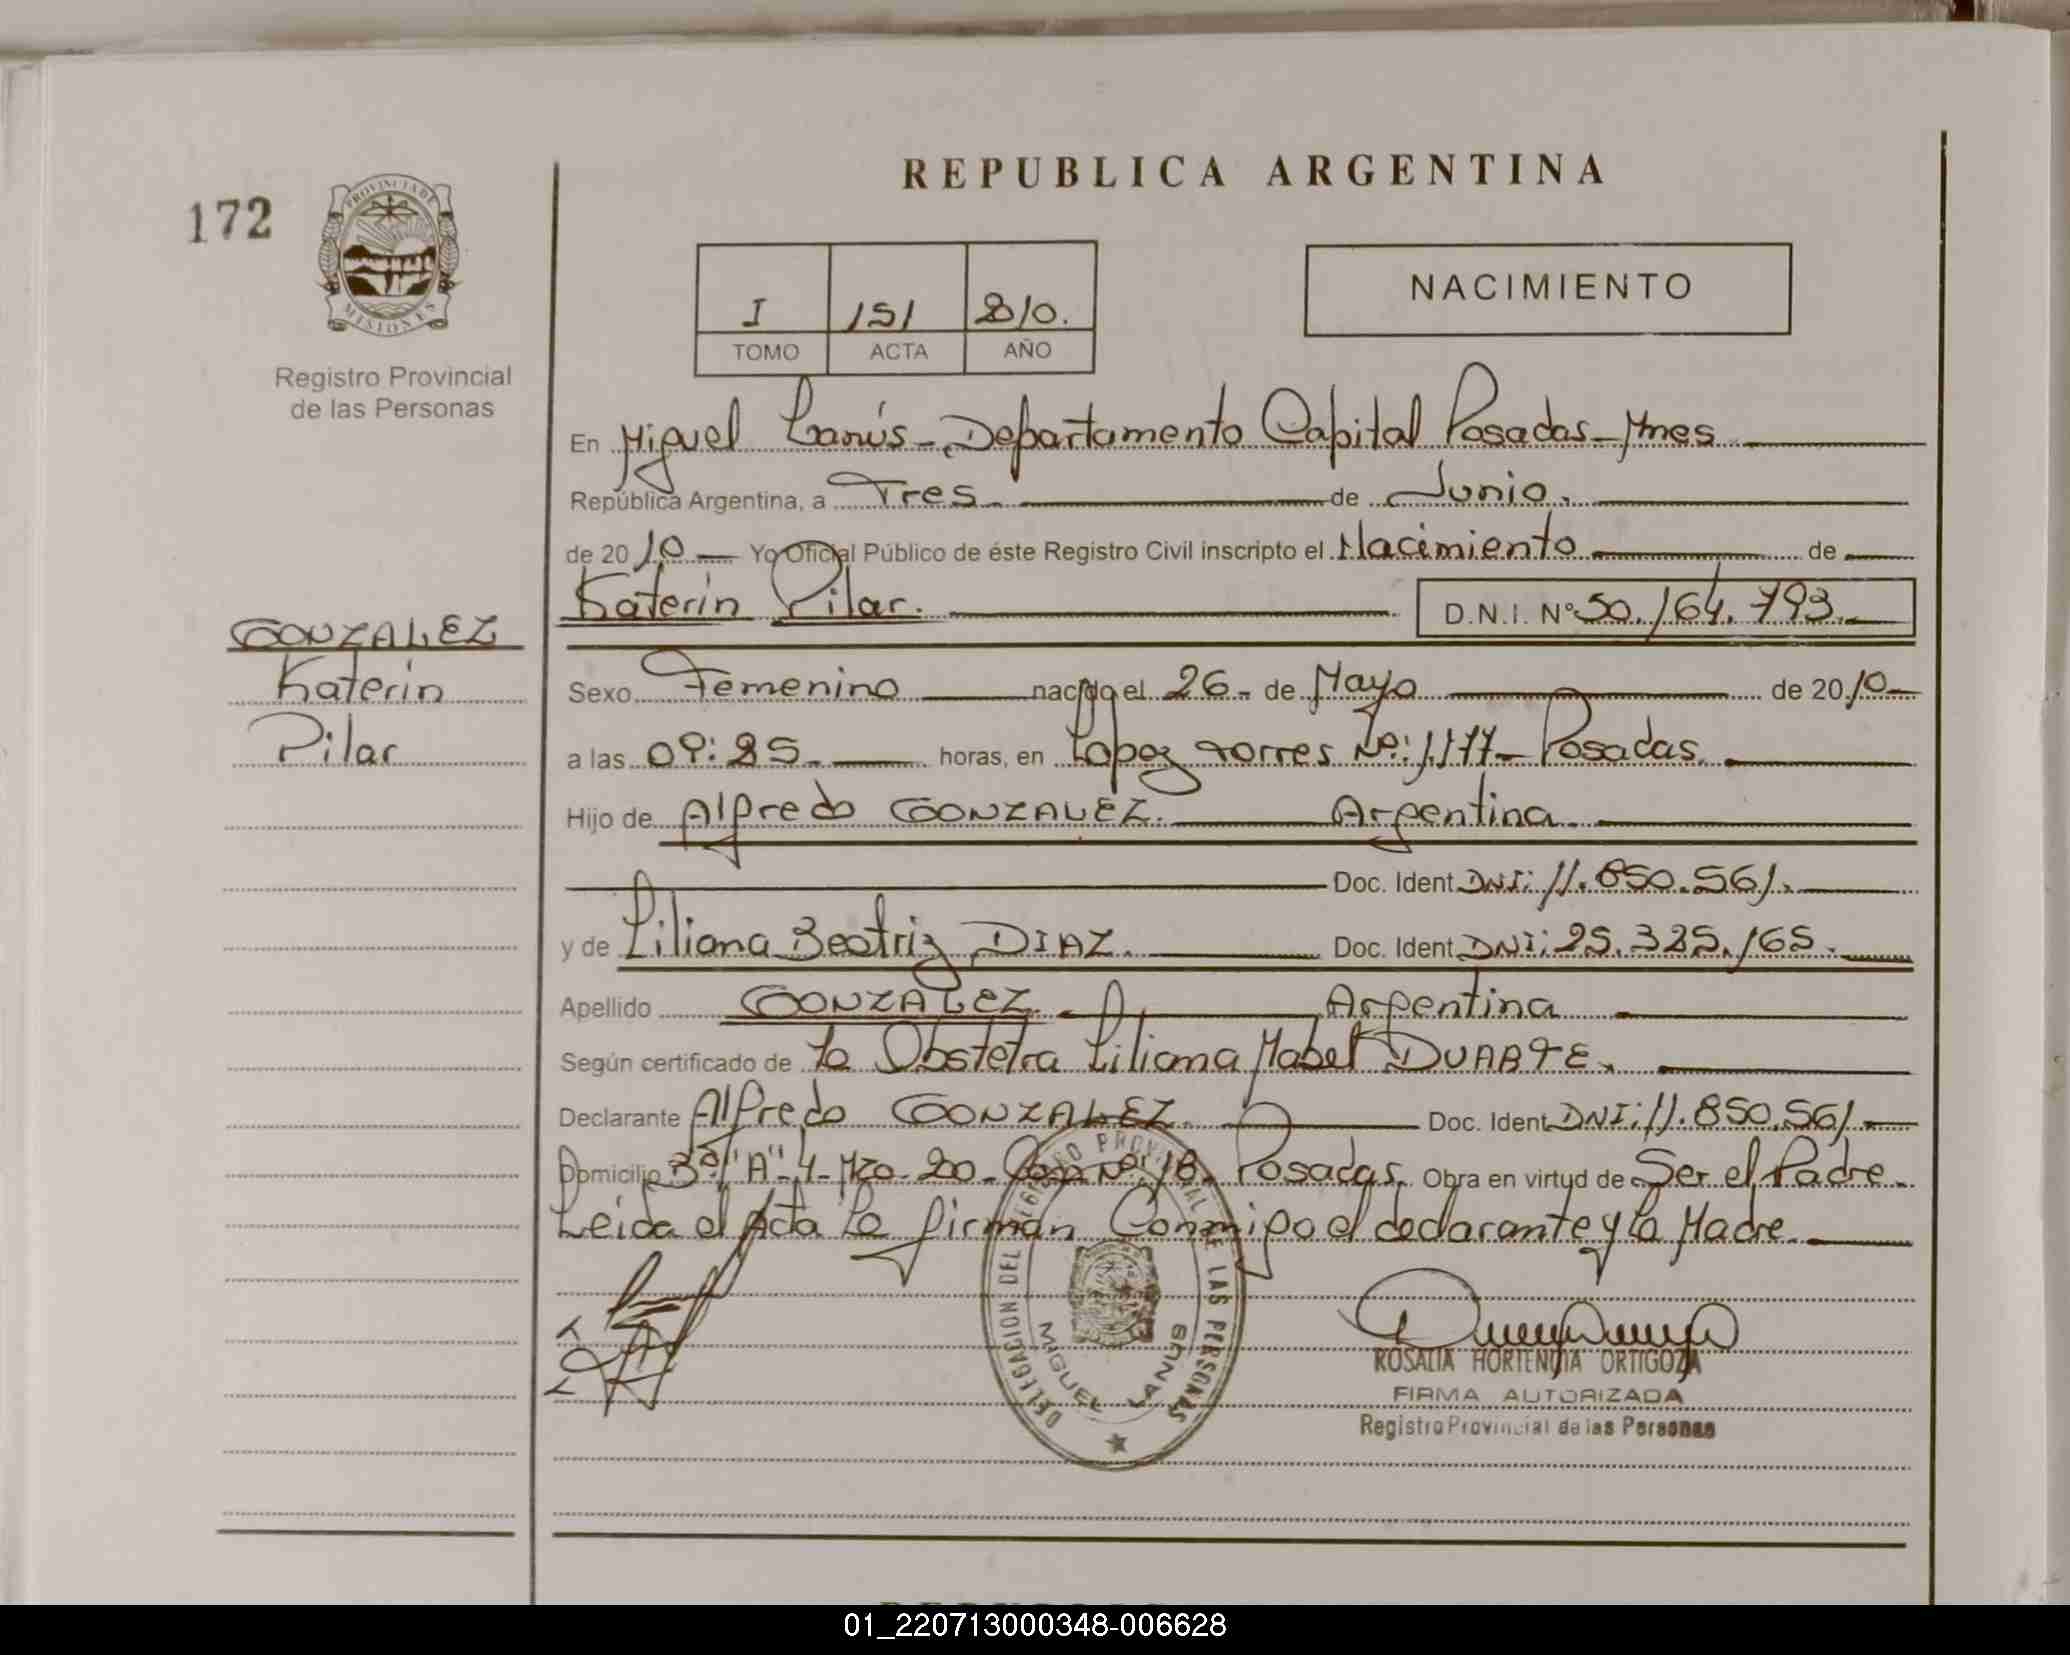 REPUBLICA ARGENTINA
172
PROVINCIA DE
MISIONES
NACIMIENTO
I 151 2010.
TOMO ACTA AÑO
Registro Provincial
de las Personas
En Miguel Lanús - Departamento Capital Posadas - Mnes
República Argentina, a Tres de Junio.
de 2010 Yo Oficial Público de éste Registro Civil inscripto el Nacimiento de
Katerin Pilar. D.N.I. Nº 50.164.793.
GONZALEZ
Katerin
Pilar
Sexo Femenino nacido el 26 - de Mayo de 2010
a las 09:25. horas, en Lopez Torres Nº: 1.177 - Posadas.
Hijo de Alfredo GONZALEZ. Argentina.
Doc. Ident. DNI: 11.850.561.
y de Liliana Beatriz DIAZ. Doc. Ident. DNI: 25.325.165.
Apellido GONZALEZ. Argentina
Según certificado de la Obstetra Liliana Mabel DUARTE.
Declarante Alfredo GONZALEZ. Doc. Ident. DNI: 11.850.561.
Domicilio 3º "A" - 4 - Mzo. 20 - Casa Nº 18. Posadas. Obra en virtud de Ser el Padre.
Leida el Acta la firman Conmigo el declarante y la Madre.
DELEGACION DEL REGISTRO PROVINCIAL DE LAS PERSONAS
MIGUEL LANUS
ROSALIA HORTENCIA ORTIGOZA
FIRMA AUTORIZADA
Registro Provincial de las Personas
01_220713000348-006628